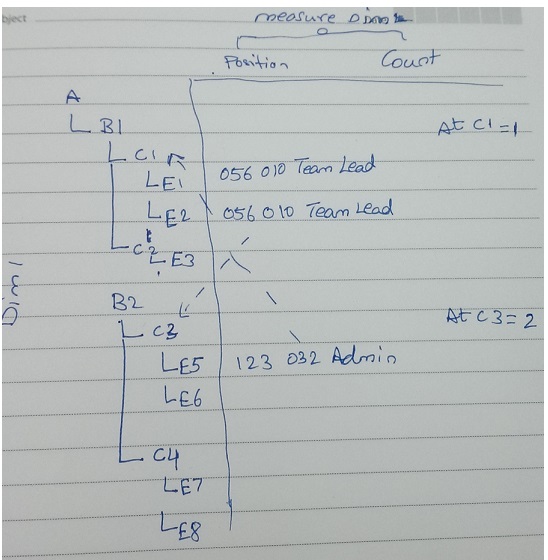 bject
measure Dim
Position Count
A
B1 At C1 = 1
C1
E1 056 010 Team Lead
E2 056 010 Team Lead
C2
E3
Dim 1
B2
C3 At C3 = 2
E5 123 032 Admin
E6
C4
E7
E8